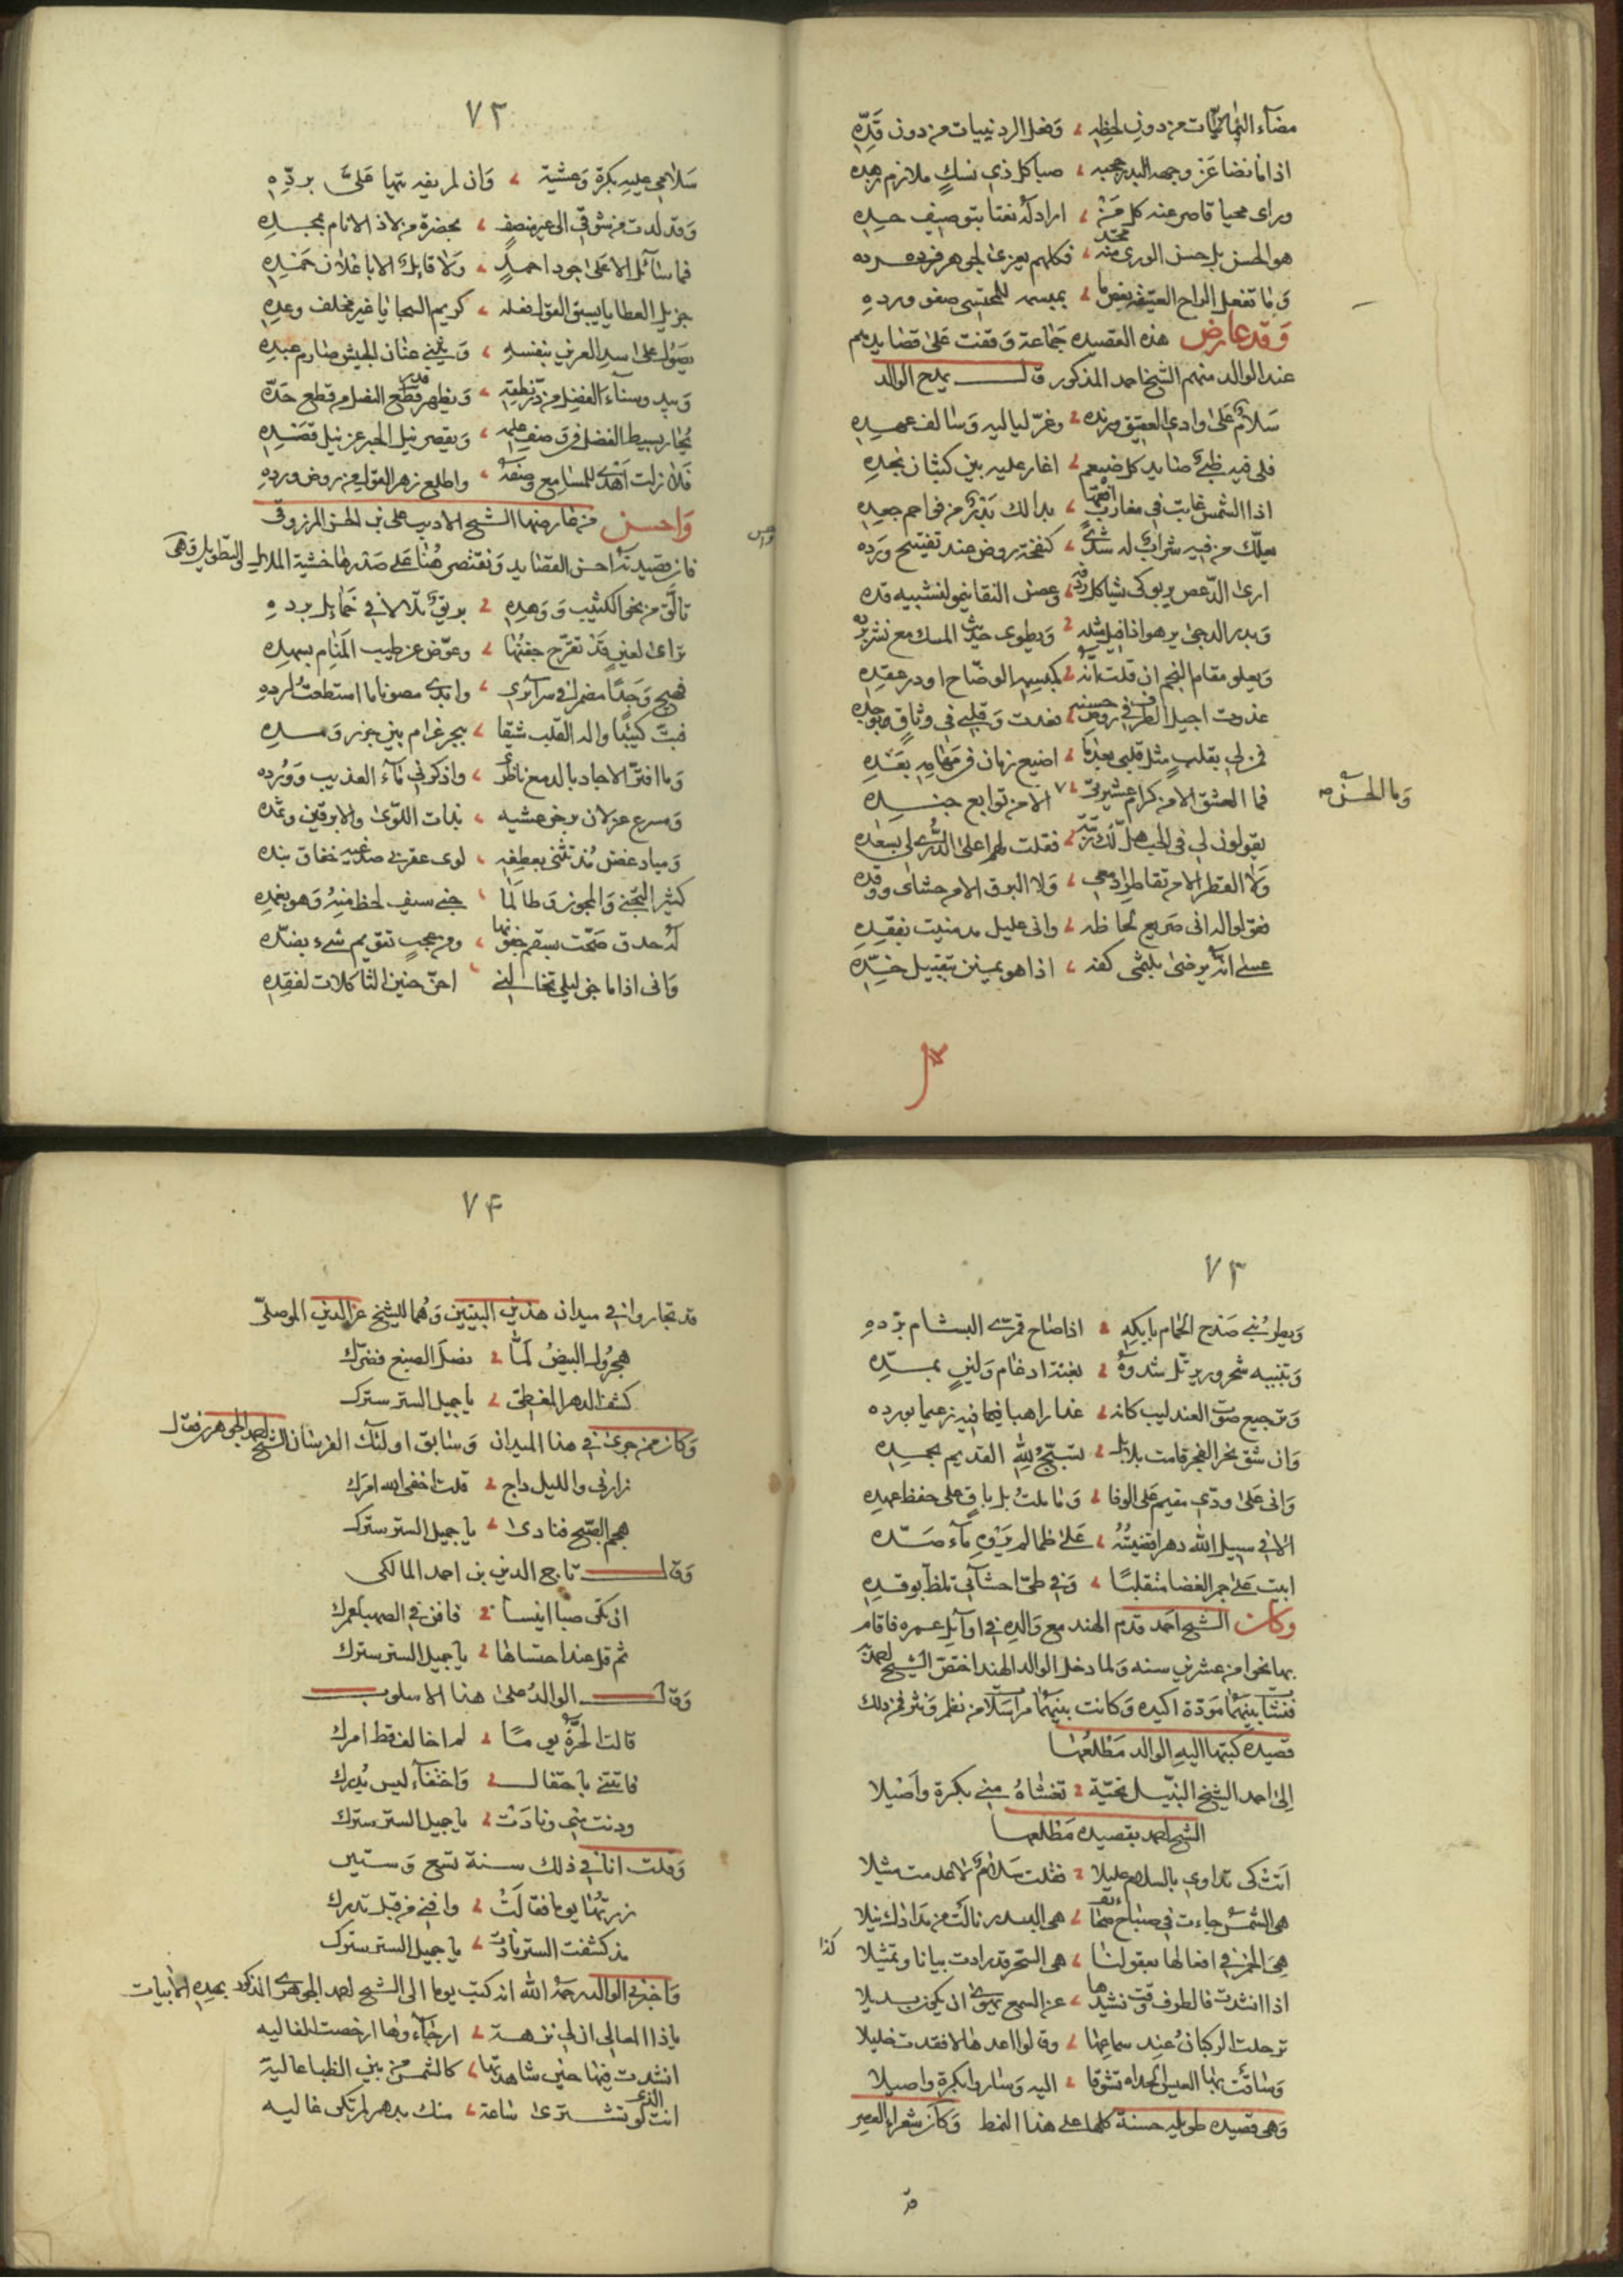 مضآء اليمانيات من دون لحظه ، وفعل الردينيات من دون قدّه
اذا ما نضا عن وجهه البدر حجبه ، صبا كل ذي نسكٍ ملازم زهده
وراى محيا قاصر عنه كل من ، اراد له نعتا بتوصيف حده
هو الحسن بل حسن الورى منه محتد ، فكلهم يعزى لجوهر فرده
وما تفعل الراح العتيقة بعض ما ، بمبسمه للمجتني صفو ورده
وقد عارض هذه القصيده جماعة وقفت على قصايدهم
عند الوالد منهم الشيخ احمد المذكور قال يمدح الوالد
سلام على وادي العقيق ورنده ، وغر لياليه وسالف عهده
فلي فيه ظبي صايد كل ضيغم ، اغار عليه بين كثبان نجده
اذا الشمس غابت في مغاربها ، بدا لك بدر من فواحم جعده
يعلّك من فيه شراب له شذى ، كنفحة روض عند تفتيح ورده
ارى الدّعص يربو كي يشاكل ردفه ، وغصن النقا ينمو لتشبيه قده
وبدر الدجى يزهو اذا قيل مثله ، ويطوى حديث المسك مع نشر
ويعلو مقام النجم ان قلت انه ، كمبسمه الوضّاح او در عقده
غدوت اجيل الطرف في روض حسنه ، فعدت وقلبي في وثاق بوجده
فمن لي بقلب مثل قلبي بعد ما ، اضيع زمان في مهامه بعده
فما العشق الا من كرام عشيرتي ، وما الحسن الا من توابع جنده
يقولون لي في الحب هل لك ، فقلت لهم اعلى الذرى لي بسعده
ولا القطر الا من تقاطر ادمعي ، ولا البرق الا من حشاي ووقده
فقولوا له اني صريع لحاظه ، واني عليل مذ منيت بفقده
عسى انه يرضى بلثمي كفه ، اذا هو يمنن بتقبيل خدّه
وما الحسن صح
٧٢
سلامي عليه بكرة وعشية ، وان لم يفه تيها عليّ بردّه
وقد لذت من شوقي الى غير منصف ، بحضرة من لاذ الانام بمجده
فما سائل الا على جود احمد ، ولا قايل الا باغلان حمده
جزيل العطايا يسبق القول فعله ، كريم السجايا غير مخلف وعده
يصول على اسد العرين بنفسه ، ويثني عنان الجيش صارم عبده
ويبدو سناء الفضل من درّ نطقه ، ويظهر قدر الفصل من قطع حدّه
يحار بسيط الفضل في وصف علمه ، ويقصر نيل الحبر عن نيل قصده
فلا زلت اهدي للمسامع وصفه ، واطلع زهر القول من روض ورده
واحسن من عارضها الشيخ الاديب علي بن الحسن المرزوقي
فان قصيدته احسن القصايد ونقتصر هنا على صدرها خشية الملال والتطويل وهي
تألق من نحو الكثيب ووهده ، بريق تلالا في خمايل برده
تراءى لعين قد تقرّح جفنها ، وعوّض عن طيب المنام بسهده
فهيج وجدا مضمرا في سرائري ، وابدى مصونا ما استطعت لرده
فبتّ كئيبا واله القلب شيقا ، ببحر غرام بين جزر ومده
وما افترّ الا جاد بالدمع ناظري ، واذكرني ماء العذيب وورده
ومسرع غزلان برخو عشيه ، بذات اللوى والابرقين وثمده
ومياد غصن مذ تثنى بعطفه ، لوى عقربي صدغيه خفاق بنده
كثير التجني والمجون وطالما ، جنى سيف لحظ منه وهو بغمده
له حدق صحّت بسقم جفونها ، ومن عجب تقويم شيء بضدّه
واني اذا ما جن ليلي تخالني ، احنّ حنين الثاكلات لفقده
٧٣
ويطربني صدح الحمام بايكه ، اذا صاح قمري البشام بردده
وتنبيه شحرور يرتل شدوه ، بغنة ادغام ولين بمدّه
وترجيع صوت العندليب كانه ، غدا راهبا فيما فيه زعيما بورده
وان شق نحر الفجر قامت بلابل ، تسبّح لله القديم بحمده
واني على ودّي مقيم على الوفا ، وما ملت بل باقٍ على حفظ عهده
الا في سبيل الله دهر اقضيته ، على ظما لم يروه ماء صدّه
ابيت على جمر الغضا متقلبا ، وفي طي احشائي تلظّ بوقده
وكان الشيخ احمد قدم الهند مع والده في اوايل عمره فاقام
بها نحوا من عشرين سنه ولما دخل الوالد الهند اختص الشيخ احمد
فنشات بينهما مودة اكيده وكانت بينهما مراسلات من نظم ونثر فمن ذلك
قصيده كتبها اليه الوالد مطلعها
الى احمد الشيخ النبيل تحية ، تغشاه مني بكرة واصيلا
الشيخ احمد بقصيده مطلعها
اتت كي تداوي بالسلام عليلا ، فقلت سلام لا عدمت مثيلا
هي الشمس جاءت في صباح ، هي البدر نالت من مداد نيلا
هي الخمر في افعالها بعقولنا ، هي السحر قد زادت بيانا وتمثيلا
كذا
اذا انشدت فالطرف وقت نشيدها ، عن السمع يهوى ان يكون بديلا
ترحلت الركبان عند سماعها ، وقالوا اعدها لا فقدت خليلا
وساقت بها العيس الحداة تشوقا ، اليه وساروا بكرة واصيلا
وهي قصيده طويله حسنة كلها على هذا النمط وكان شعراء العصر
قد
٧٤
قد تجاروا في ميدان هذين البيتين وهما للشيخ عز الدين الموصليّ
هجرُ البيض لمّا ، فضل الصبغ فضرّك
كشف الدهر المغطى ، يا جميل الستر سترك
وكان ممن جرى في هذا الميدان وسابق اولئك الفرسان الشيخ احمد الجوهري فقال
زارني والليل داج ، قلت اخفى الله امرك
هجم الصبح فنادى ، يا جميل الستر سترك
وقال تاج الدين بن احمد المالكي
ان تكن صبا انيسا ، فافن في الصهبا عمرك
ثم قل عند احتساها ، يا جميل الستر سترك
وقال الوالد على هذا الاسلوب
قالت الحرّة يوما ، لم اخالف قط امرك
فاتني باحتفال ، واختفاء ليس يدرك
ودنت مني ونادت ، يا جميل الستر سترك
وقلت انا في ذلك سنة تسع وستين
زرتها يوما فقالت ، وافني من قبل تدرك
مذ كشفت الستر نادت ، يا جميل الستر سترك
واخبرني الوالد رحمه الله انه كتب يوما الى الشيخ احمد الجوهري المذكور بهذه الابيات
ياذا المعالي ان لي نزهة ، ارجاءوها ارخصت الغاليه
انشدت فيها حين شاهدتها ، كالشمس من بين الظبا عالية
انت الذي لو تشترى ساعة ، منك بدهر لم تكن غاليه